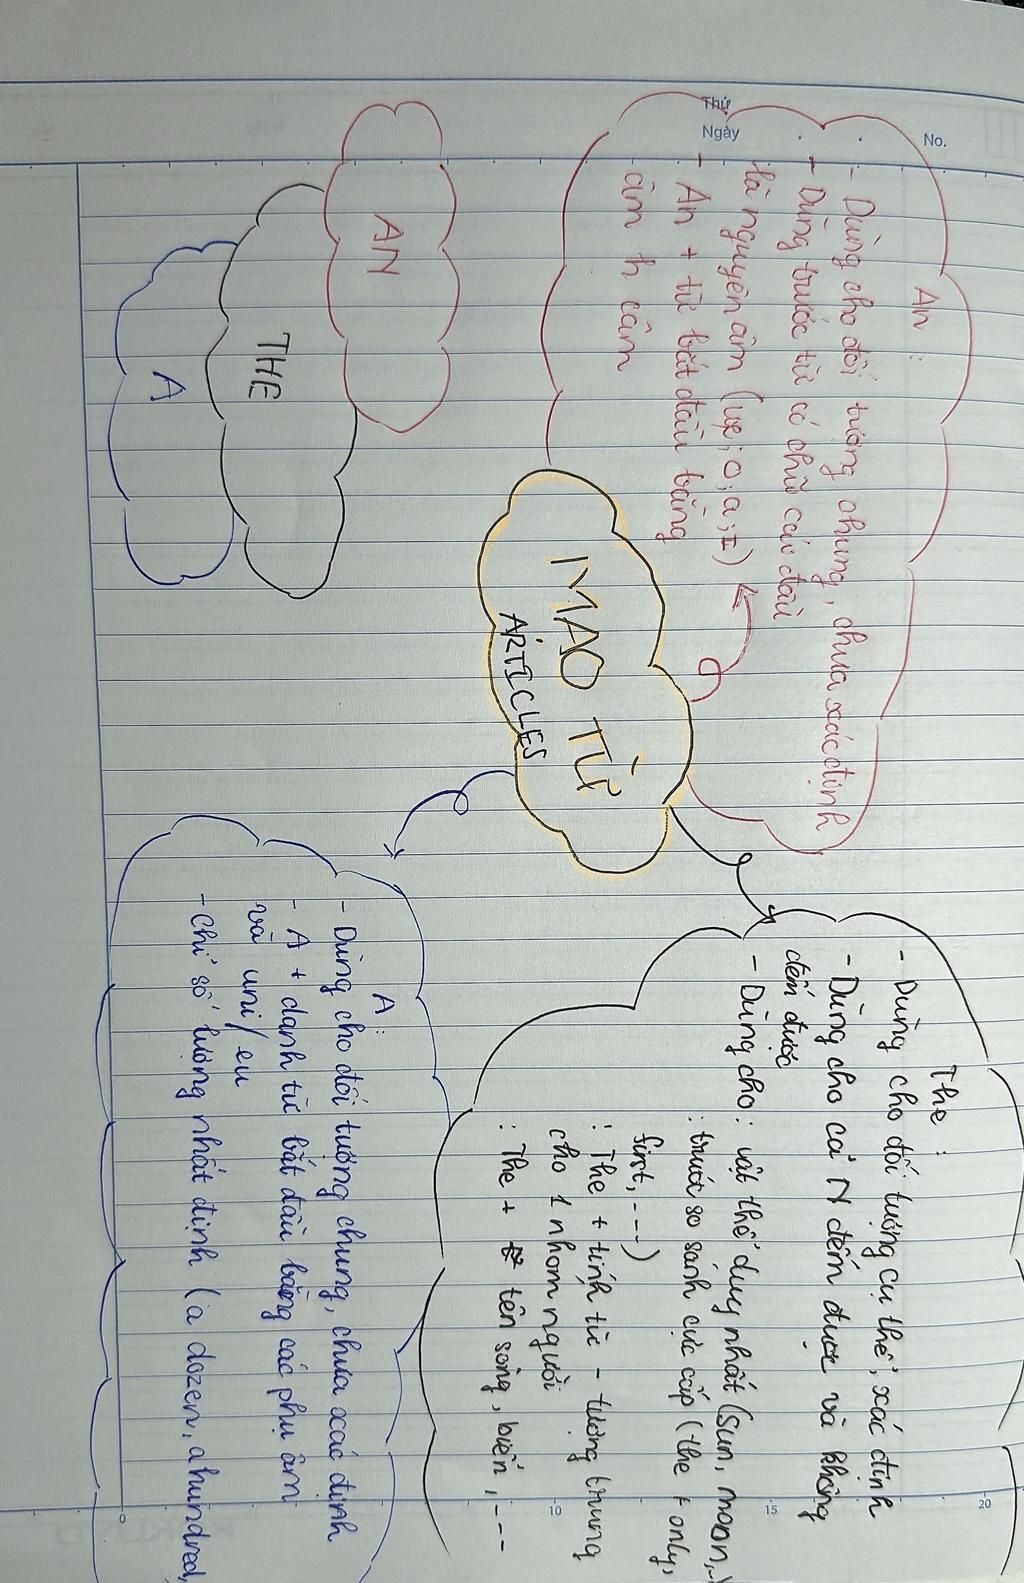 Thứ
Ngày
No.
An :
- Dùng cho đối tượng chung, chưa xác định
- Dùng trước từ có chữ cái đầu
là nguyên âm (ue; o; a; i)
- An + từ bắt đầu bằng
âm h câm
MẠO TỪ
ARTICLES
The :
- Dùng cho đối tượng cụ thể, xác định
- Dùng cho cả N đếm được và không
đếm được
- Dùng cho : vật thể duy nhất (Sun, moon,..)
: trước so sánh cực cấp (the + only,
first, ---)
: The + tính từ - tượng trưng
cho 1 nhom người
: The + tên sông, biển, ---
AN
THE
A
A :
- Dùng cho đối tượng chung, chưa xác định
- A + danh từ bắt đầu bằng các phụ âm
và uni/eu
- Chỉ số lượng nhất định (a dozen, a hundred,
0
10
15
20